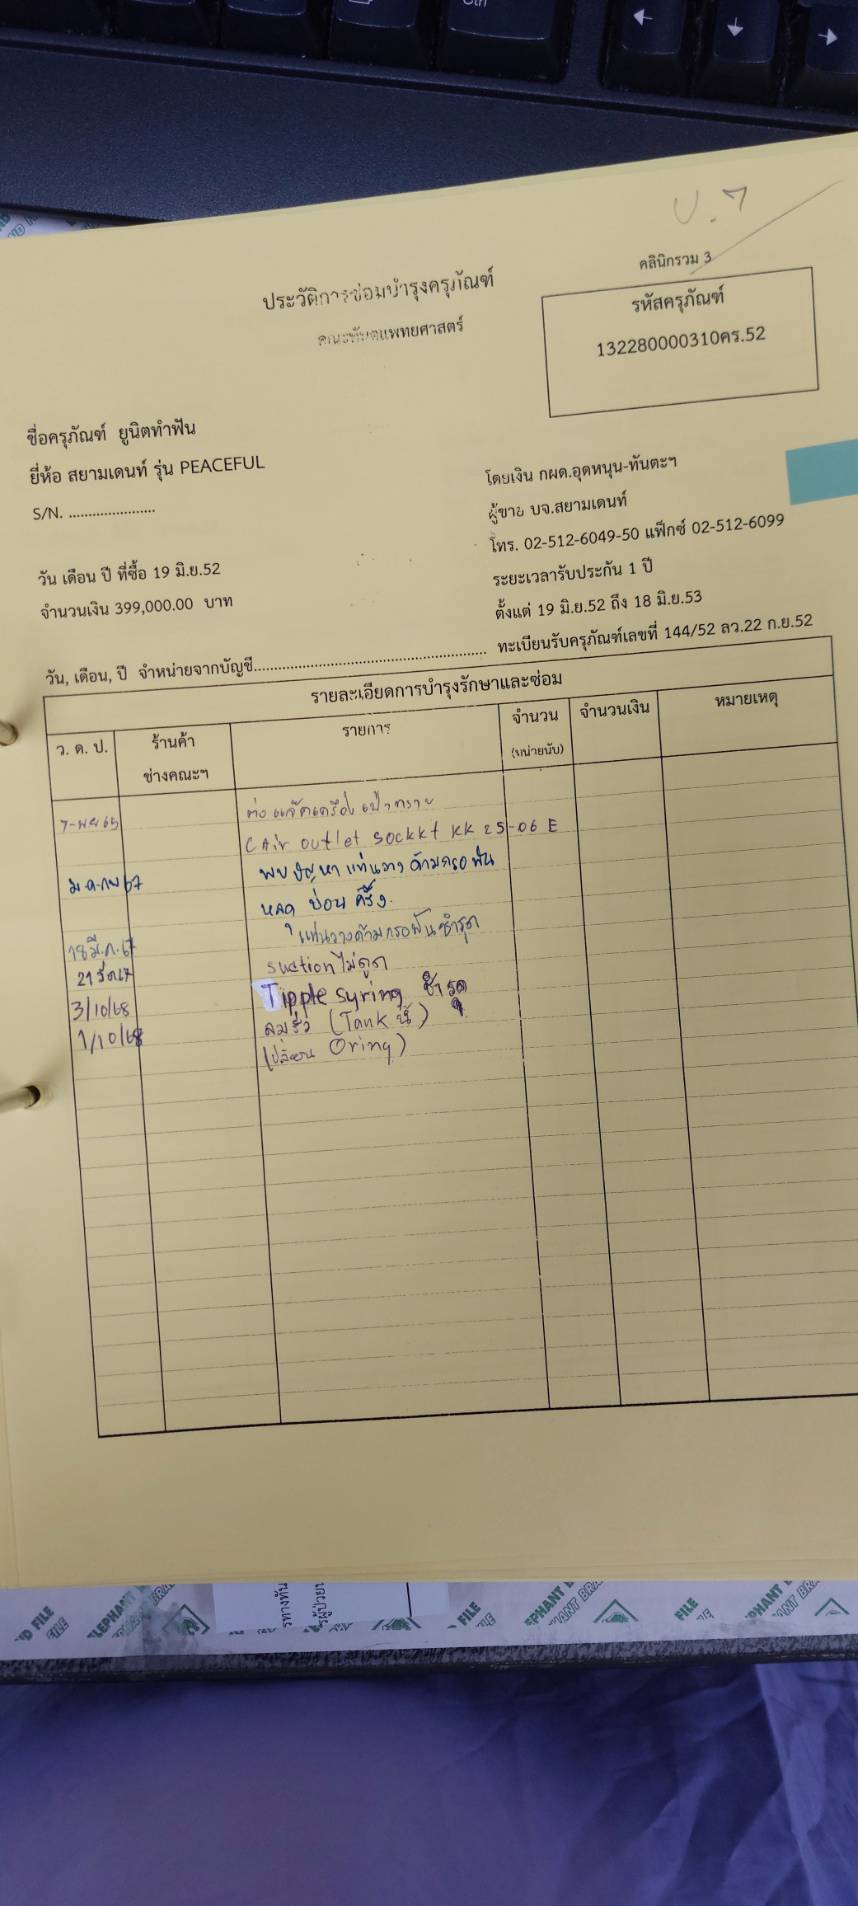 Ctrl
ป.7
คลินิกรวม 3
ประวัติการซ่อมบำรุงครุภัณฑ์
คณะทันตแพทยศาสตร์
รหัสครุภัณฑ์
132280000310คร.52
ชื่อครุภัณฑ์ ยูนิตทำฟัน
ยี่ห้อ สยามเดนท์ รุ่น PEACEFUL
S/N. ......................
โดยเงิน กผด.อุดหนุน-ทันตะฯ
ผู้ขาย บจ.สยามเดนท์
โทร. 02-512-6049-50 แฟ็กซ์ 02-512-6099
วัน เดือน ปี ที่ซื้อ 19 มิ.ย.52
ระยะเวลารับประกัน 1 ปี
จำนวนเงิน 399,000.00 บาท
ตั้งแต่ 19 มิ.ย.52 ถึง 18 มิ.ย.53
วัน, เดือน, ปี จำหน่ายจากบัญชี........................................................ ทะเบียนรับครุภัณฑ์เลขที่ 144/52 ลว.22 ก.ย.52
รายละเอียดการบำรุงรักษาและซ่อม
ว. ด. ป. ร้านค้า รายการ จำนวน จำนวนเงิน หมายเหตุ
ช่างคณะฯ (หน่วยนับ)
เป่าทราย
Air outlet sockkt KK 25-06 E
พบปัญหา แท่นวาง ด้ามกรอฟัน
หลุด บ่อนครั้ง.
18 มี.ค. 67 แท่นวางด้ามกรอฟันชำรุด
suction ไม่ดูด
3/10/68 Tipple syring ชำรุด
1/10/68 ลมรั่ว (Tank น้ำ)
(เปลี่ยน Oring)
ELEPHANT BRAND FILE